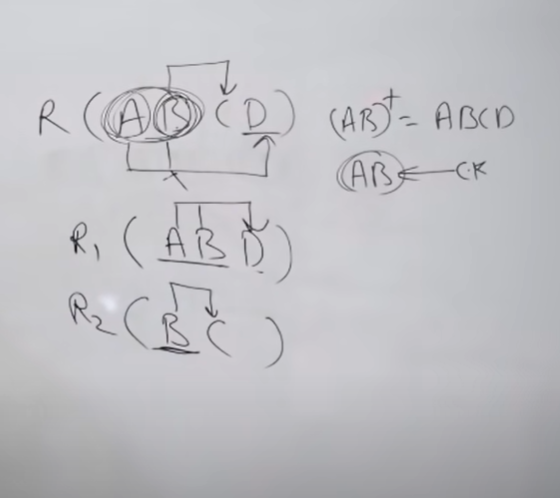 R ( A B C D ) (AB)+ = ABCD
AB ← CK
R1 ( A B D )
R2 ( B C )